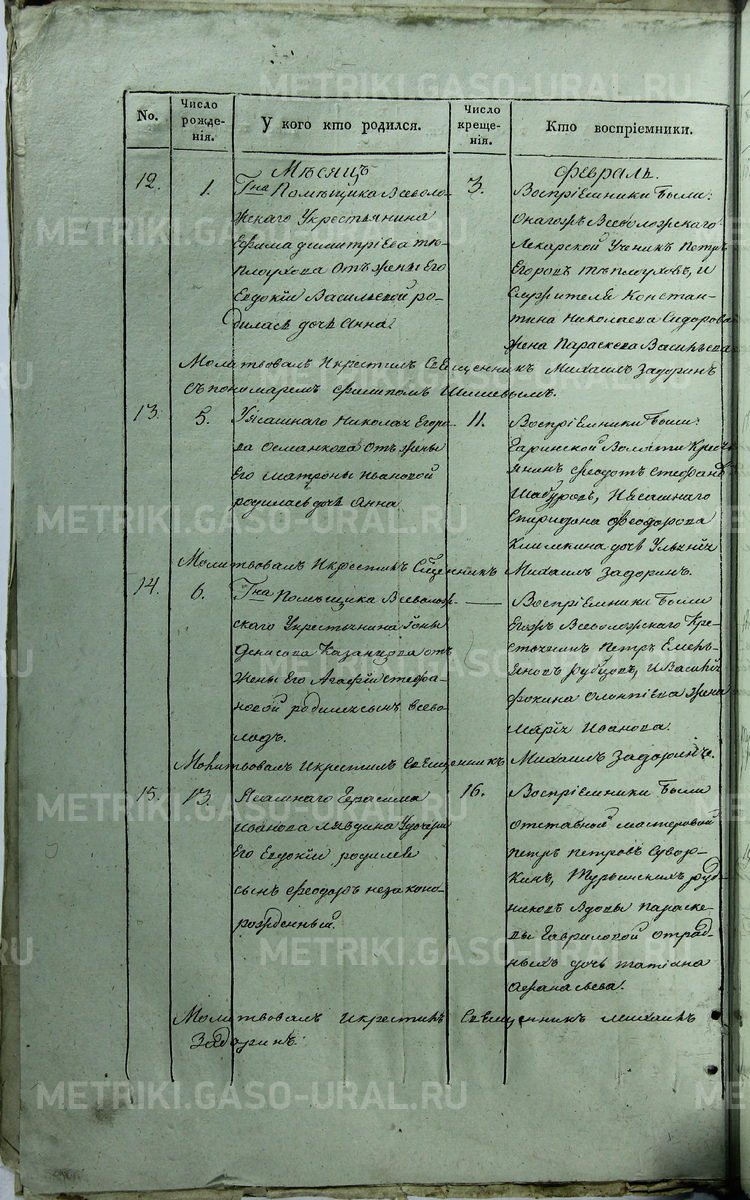 METRIKI.GASO-URAL.RU
No.
Число рожденія.
У кого кто родился.
Число крещенія.
Кто воспріемники.
Мѣсяцъ
Февраль.
12.
1.
Гна Помѣщика Всеволо-
жскаго Укрестьянина
Ефима Димитріева Тѣ-
плоухова Отъ жены Его
Евдокіи Васильевой ро-
дилась дочь Анна.
3.
Воспріемники были:
Онагожъ Всеволожскаго
Лекарской Ученикъ Петръ
Егоровъ Тѣплоуховъ, И
Служителя Констан-
тина Николаева Сидорова
жена Параскева Васильева
Молитвовалъ Икрестилъ Священникъ Михаилъ Задоринъ
Съ пономаремъ Филипомъ Шишевымъ.
13.
5.
Уясашнаго Николая Егоро-
ва Османкова Отъ жены
Его Матроны Ивановой
родилась дочь Анна
11.
Воспріемники были:
Гаринской Волости Кресть-
янинъ Феодотъ Стефанъ
Шабуровъ, Иясашнаго
Спиридона Феодорова
Климкина дочь Ульянія
Молитвовалъ Икрестилъ Сщенникъ Михаилъ Задоринъ.
14.
6.
Гна Помѣщика Всеволож-
скаго Укрестьянина Іоны
Денисова Казанцова отъ
Жены Его Агафіи Стефа-
новой родился сынъ Всево-
лодъ.
Воспріемники были
Егожъ Всеволожскаго Кре-
стьянинъ Петръ Емель-
яновъ Рубцовъ, И Василія
Фокина Олонпіева жена
Марія Иванова.
Молитвовалъ Икрестилъ Священникъ Михаилъ Задоринъ.
15.
13.
Ясашнаго Герасима
Иванова Лявдина Удочери
Его Евдокіи родился
сынъ Феодоръ незаконо-
рожденный.
16.
Воспріемники были
отставной мастеровой
Петръ Петровъ Сувор-
кинъ, Турьинскихъ руд-
никовъ Вдовы Параске-
вы Гавриловой Отрад-
ныхъ дочь Татіана
Афанасьева.
Молитвовалъ Икрестилъ Священникъ Михаилъ
Задоринъ.